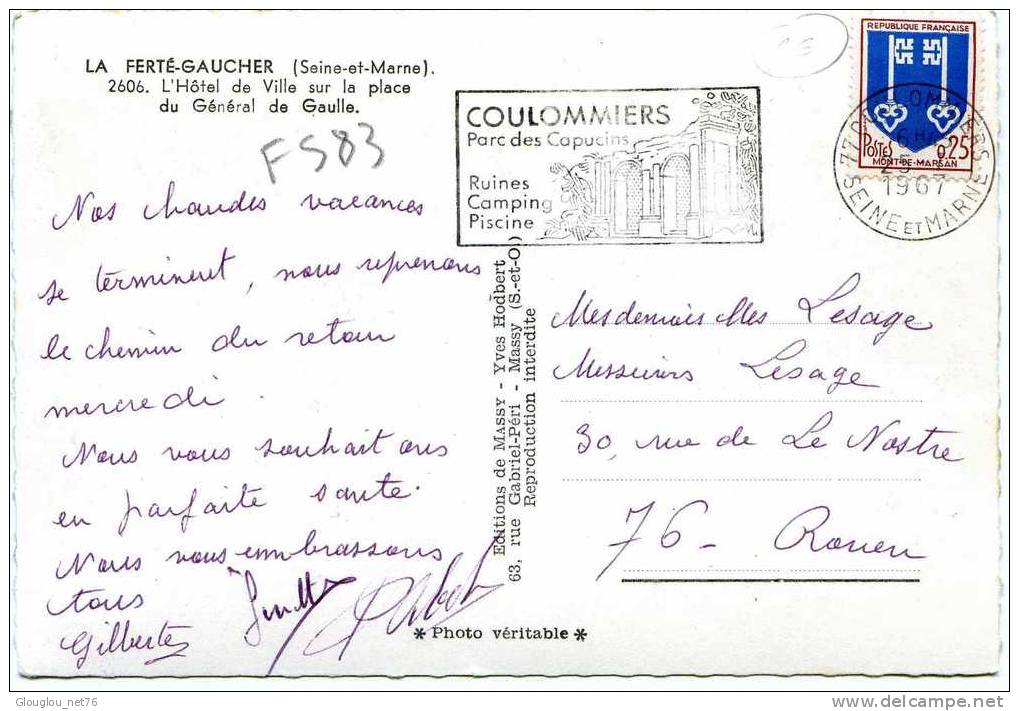 LA FERTÉ-GAUCHER (Seine-et-Marne).
2606. L'Hôtel de Ville sur la place
du Général de Gaulle.
FS83
COULOMMIERS
Parc des Capucins
Ruines
Camping
Piscine
REPUBLIQUE FRANÇAISE
POSTES 0,25
MONT-DE-MARSAN
77 COULOMMIERS
1967
SEINE ET MARNE
Nos chaudes vacances
se terminent, nous reprenons
le chemin du retour
mercredi.
Nous vous souhaitons
en parfaite santé.
Nous vous embrassons
tous
Gilberte
Editions de MASSY - Yves Hodbert
63, rue Gabriel-Péri - Massy (S.-et-O.)
Reproduction interdite
Mesdemoiselles Lesage
Messieurs Lesage
30, rue de Le Nostre
76 - Rouen
* Photo véritable *
Glouglou_net76
delcampe.net